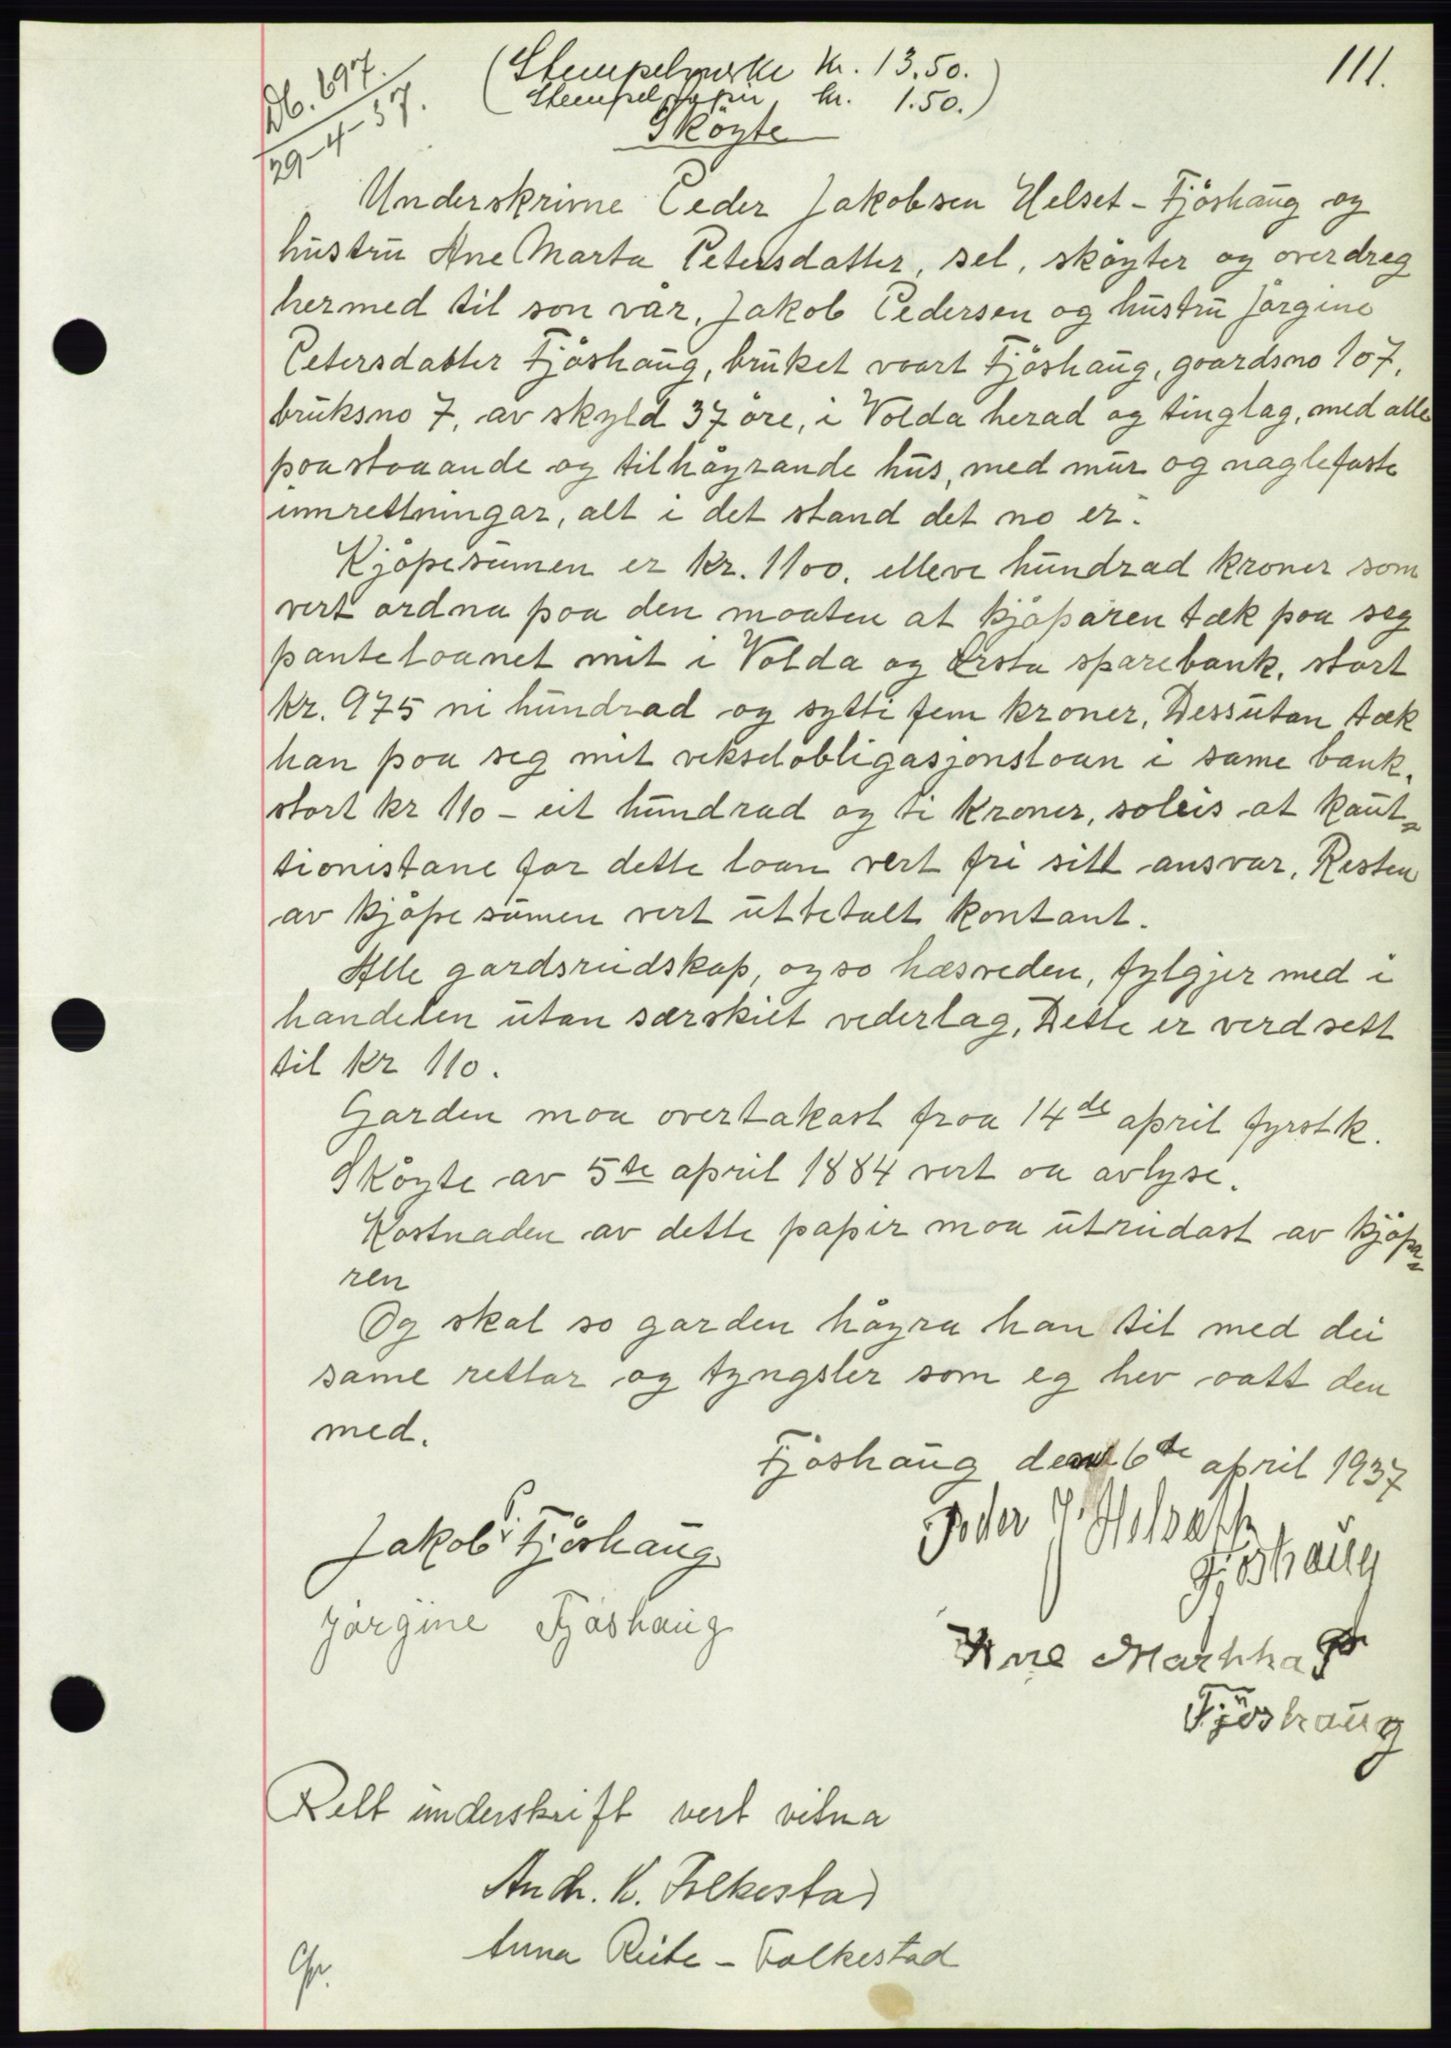 111.
Db. 697.
29-4-37.
(Stempelmerke kr. 13.50.)
(Stempelpapir kr. 1.50.)
Sköyte
Underskrivne Peder Jakobsen Helset - Fjöshaug og
hustru Ane Marta Petersdatter, sel, sköyter og overdreg
hermed til son vår, Jakob Pedersen og hustru Jörgine
Petersdatter Fjöshaug, bruket vaart Fjöshaug, gaardsno 107,
bruksno 7, av skyld 37 öre, i Volda herad og tinglag, med alle
paastaaande og tilhöyrande hus, med mur og naglefaste
innrettningar, alt i det stand det no er.
Kjöpesumen er kr. 1100. elleve hundrad kroner som
vert ordna paa den maaten at kjöparen tæk paa seg
pantelaanet mit i Volda og Örsta sparebank, stort
kr. 975 ni hundrad og sytti fem kroner, Dessutan tæk
han paa seg mit vekselobligasjonslaan i same bank,
stort kr 110 - eit hundrad og ti kroner, soleis at kaut=
tionistane for dette laan vert fri sitt ansvar, Resten
av kjöpesumen vert utbetalt kontant.
Alle gardsreidskap, ogso hæsveden, fylgjer med i
handelen utan særskiet vederlag, Dette er verdsett
til kr 110.
Garden maa overtakast fraa 14de april fyrstk.
Sköyte av 5te april 1884 vert aa avlyse.
Kostnaden av dette papir maa utreidast av kjöpa=
ren
Og skal so garden höyra han til med dei
same rettar og tyngsler som eg hev aatt den
med.
Fjöshaug den 6te april 1937
Peder J. Helseth
Fjöshaug
Jakob P. Fjöshaug
Jörgine Fjöshaug
Ane Marthha Pr
Fjöshaug
Rett underskrift vert vitna
Andr. K. Folkestad
Anna Reite - Folkestad